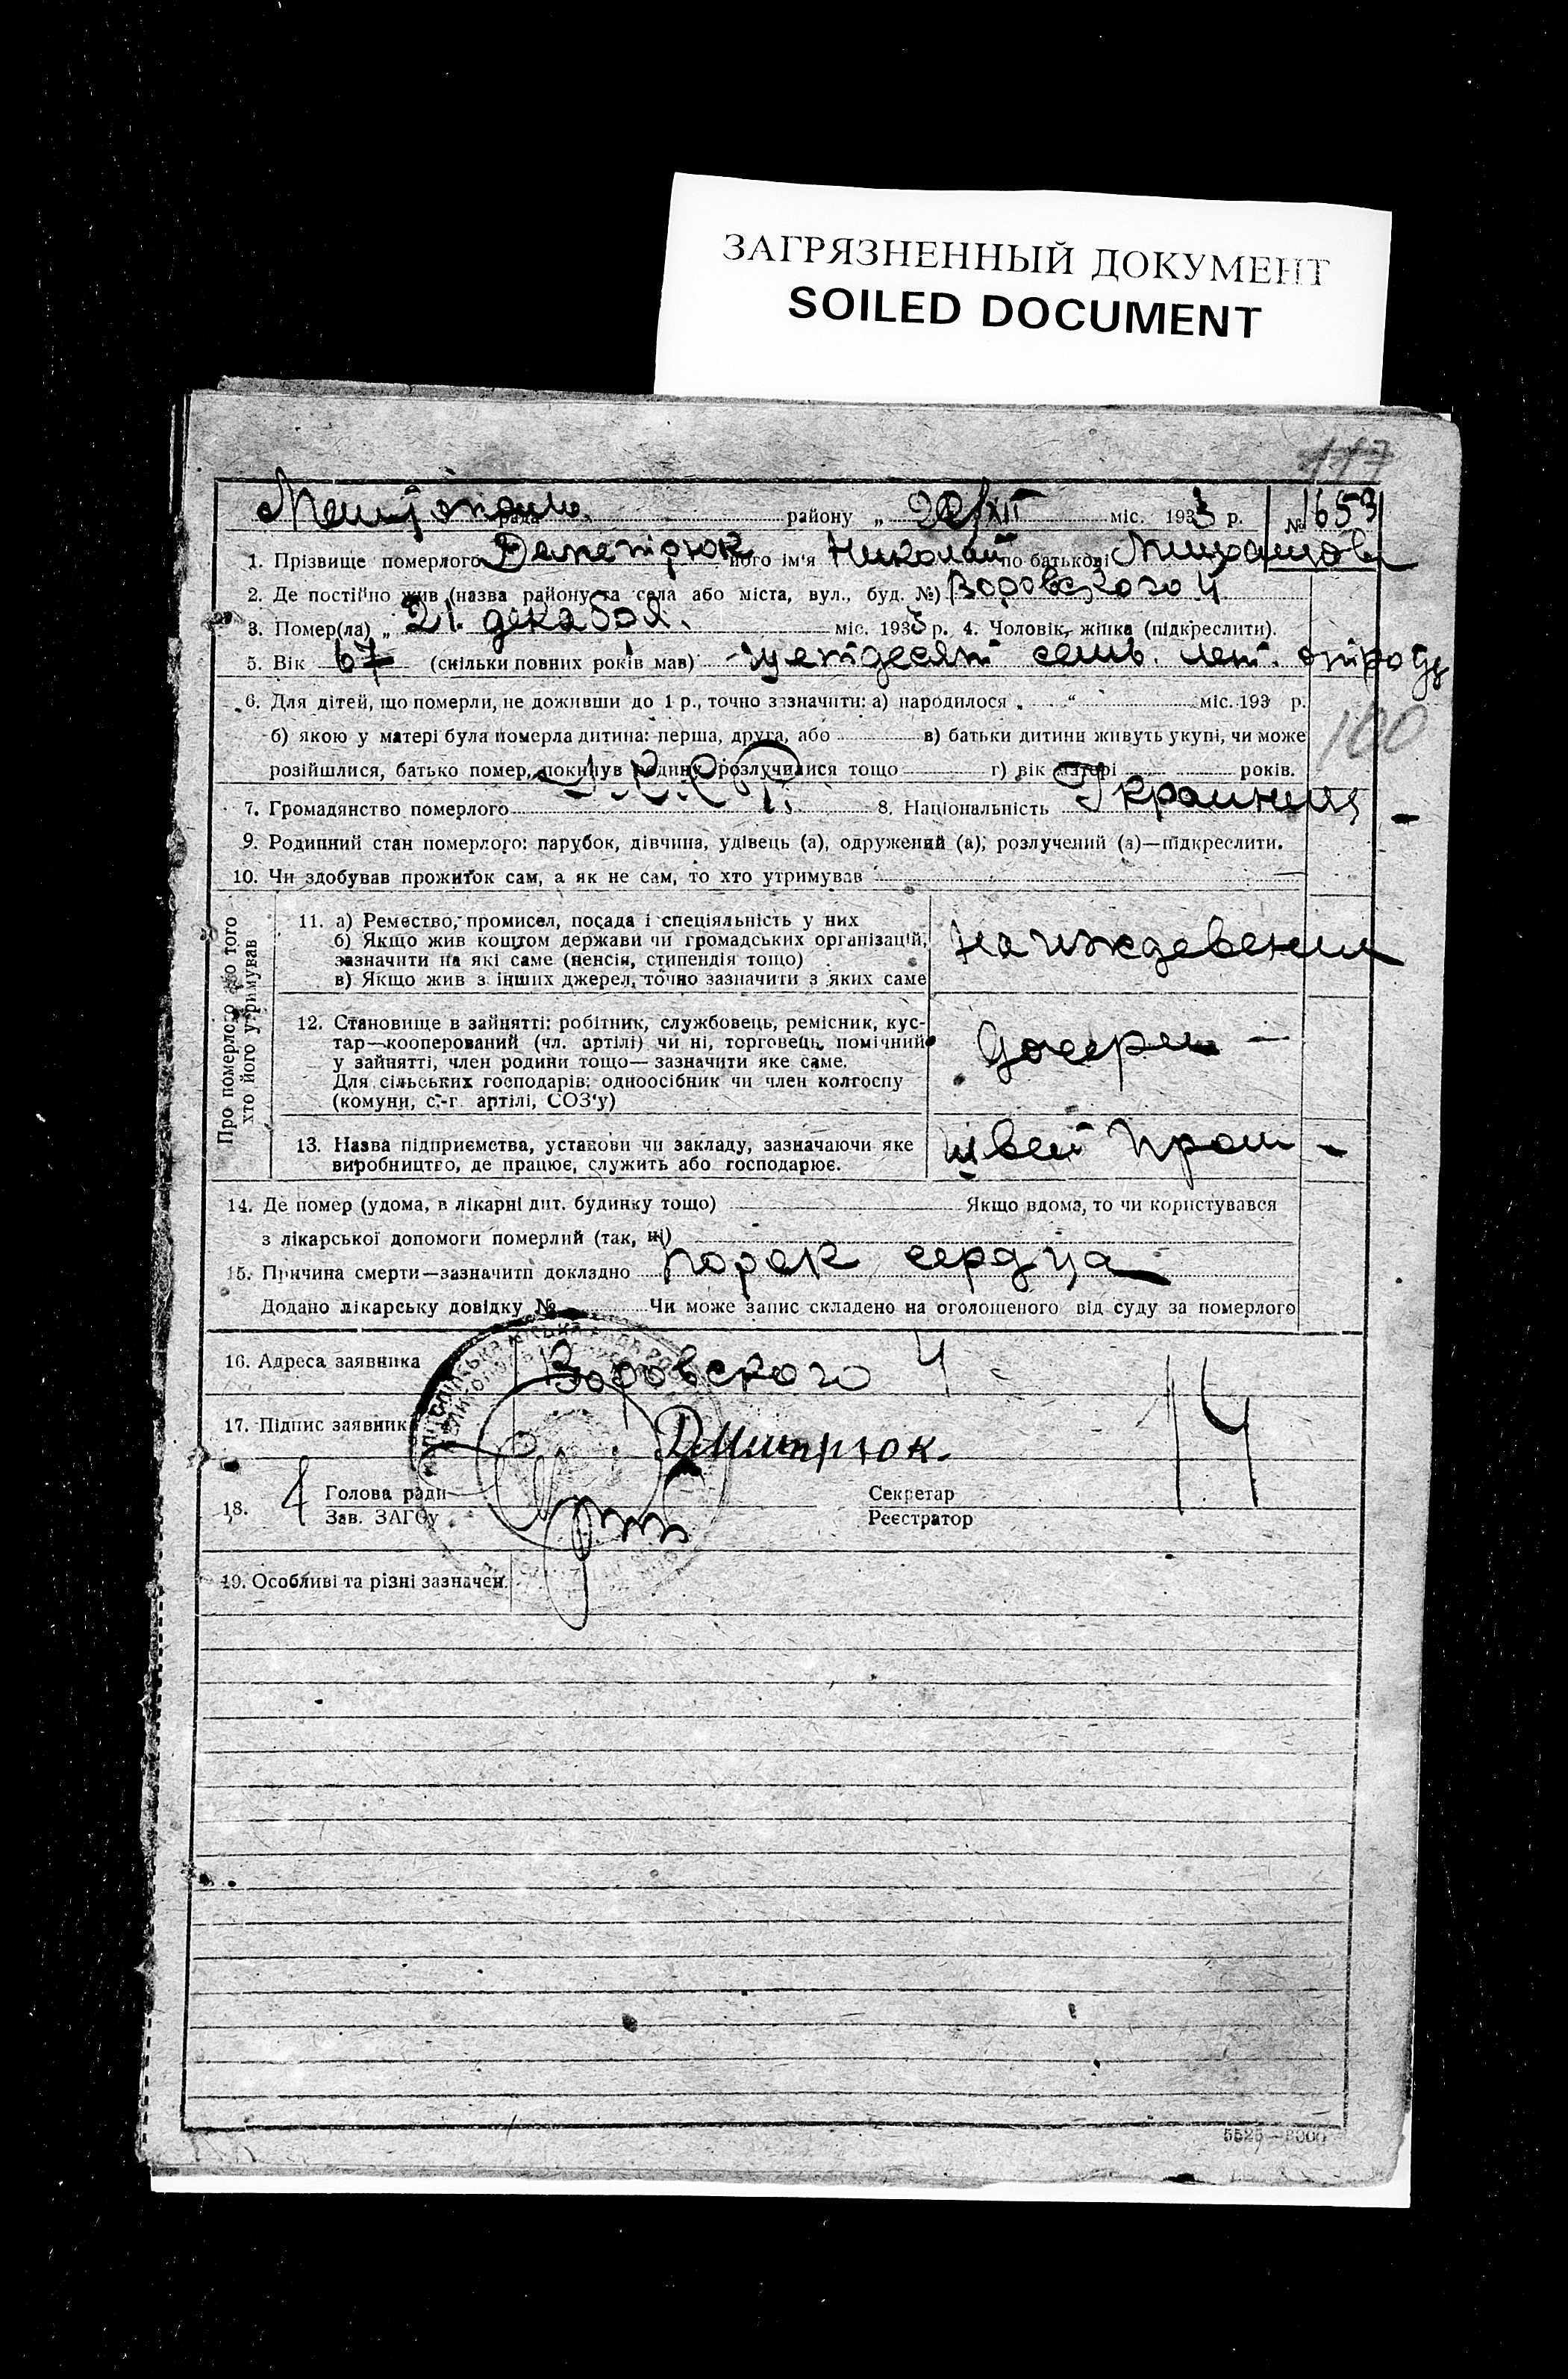 ЗАГРЯЗНЕННЫЙ ДОКУМЕНТ
SOILED DOCUMENT
117
рада району „ 22/XII міс. 1933 р. № 1653
1. Прізвище померлого його ім'я Николай по батькові
2. Де постійно жив (назва району та села або міста, вул., буд. №) Воровского 4
3. Помер(ла) „ 21. декабря. міс. 1933 р. 4. Чоловік, жінка (підкреслити).
5. Вік 67 (скільки повних років мав) семь. лет.
6. Для дітей, що померли, не доживши до 1 р., точно зазначити: а) народилося „ “ міс. 193 р.
б) якою у матері була померла дитина: перша, друга, або в) батьки дитини живуть укупі, чи може
100
розійшлися, батько помер, покинув родину, розлучилися тощо г) вік матері років.
7. Громадянство померлого У.С.С.Р. 8. Національність Украинец
9. Родинний стан померлого: парубок, дівчина, удівець (а), одружений (а), розлучений (а)—підкреслити.
10. Чи здобував прожиток сам, а як не сам, то хто утримував
Про померлого або того хто його утримував
11. а) Ремество, промисел, посада і спеціяльність у них
б) Якщо жив коштом держави чи громадських організацій,
зазначити на які саме (пенсія, стипендія тощо)
в) Якщо жив з інших джерел, точно зазначити з яких саме
на иждевении
12. Становище в зайнятті: робітник, службовець, ремісник, кус-
тар—кооперований (чл. артілі) чи ні, торговець, помічний
у зайнятті, член родини тощо—зазначити яке саме.
Для сільських господарів: одноосібник чи член колгоспу
(комуни, с.-г. артілі, СОЗ'у)
дочери —
13. Назва підприємства, установи чи закладу, зазначаючи яке
виробництво, де працює, служить або господарює.
швей пром -
14. Де помер (удома, в лікарні дит. будинку тощо) Якщо вдома, то чи користувався
з лікарської допомоги померлий (так, ні)
15. Причина смерти—зазначити докладно порок сердца
Додано лікарську довідку № Чи може запис складено на оголошеного від суду за померлого
16. Адреса заявника Воровского 4
17. Підпис заявник Дмитрюк.
14
18. Голова ради Секретар
Зав. ЗАГСу Реєстратор
19. Особливі та різні зазначен.
5525—8000